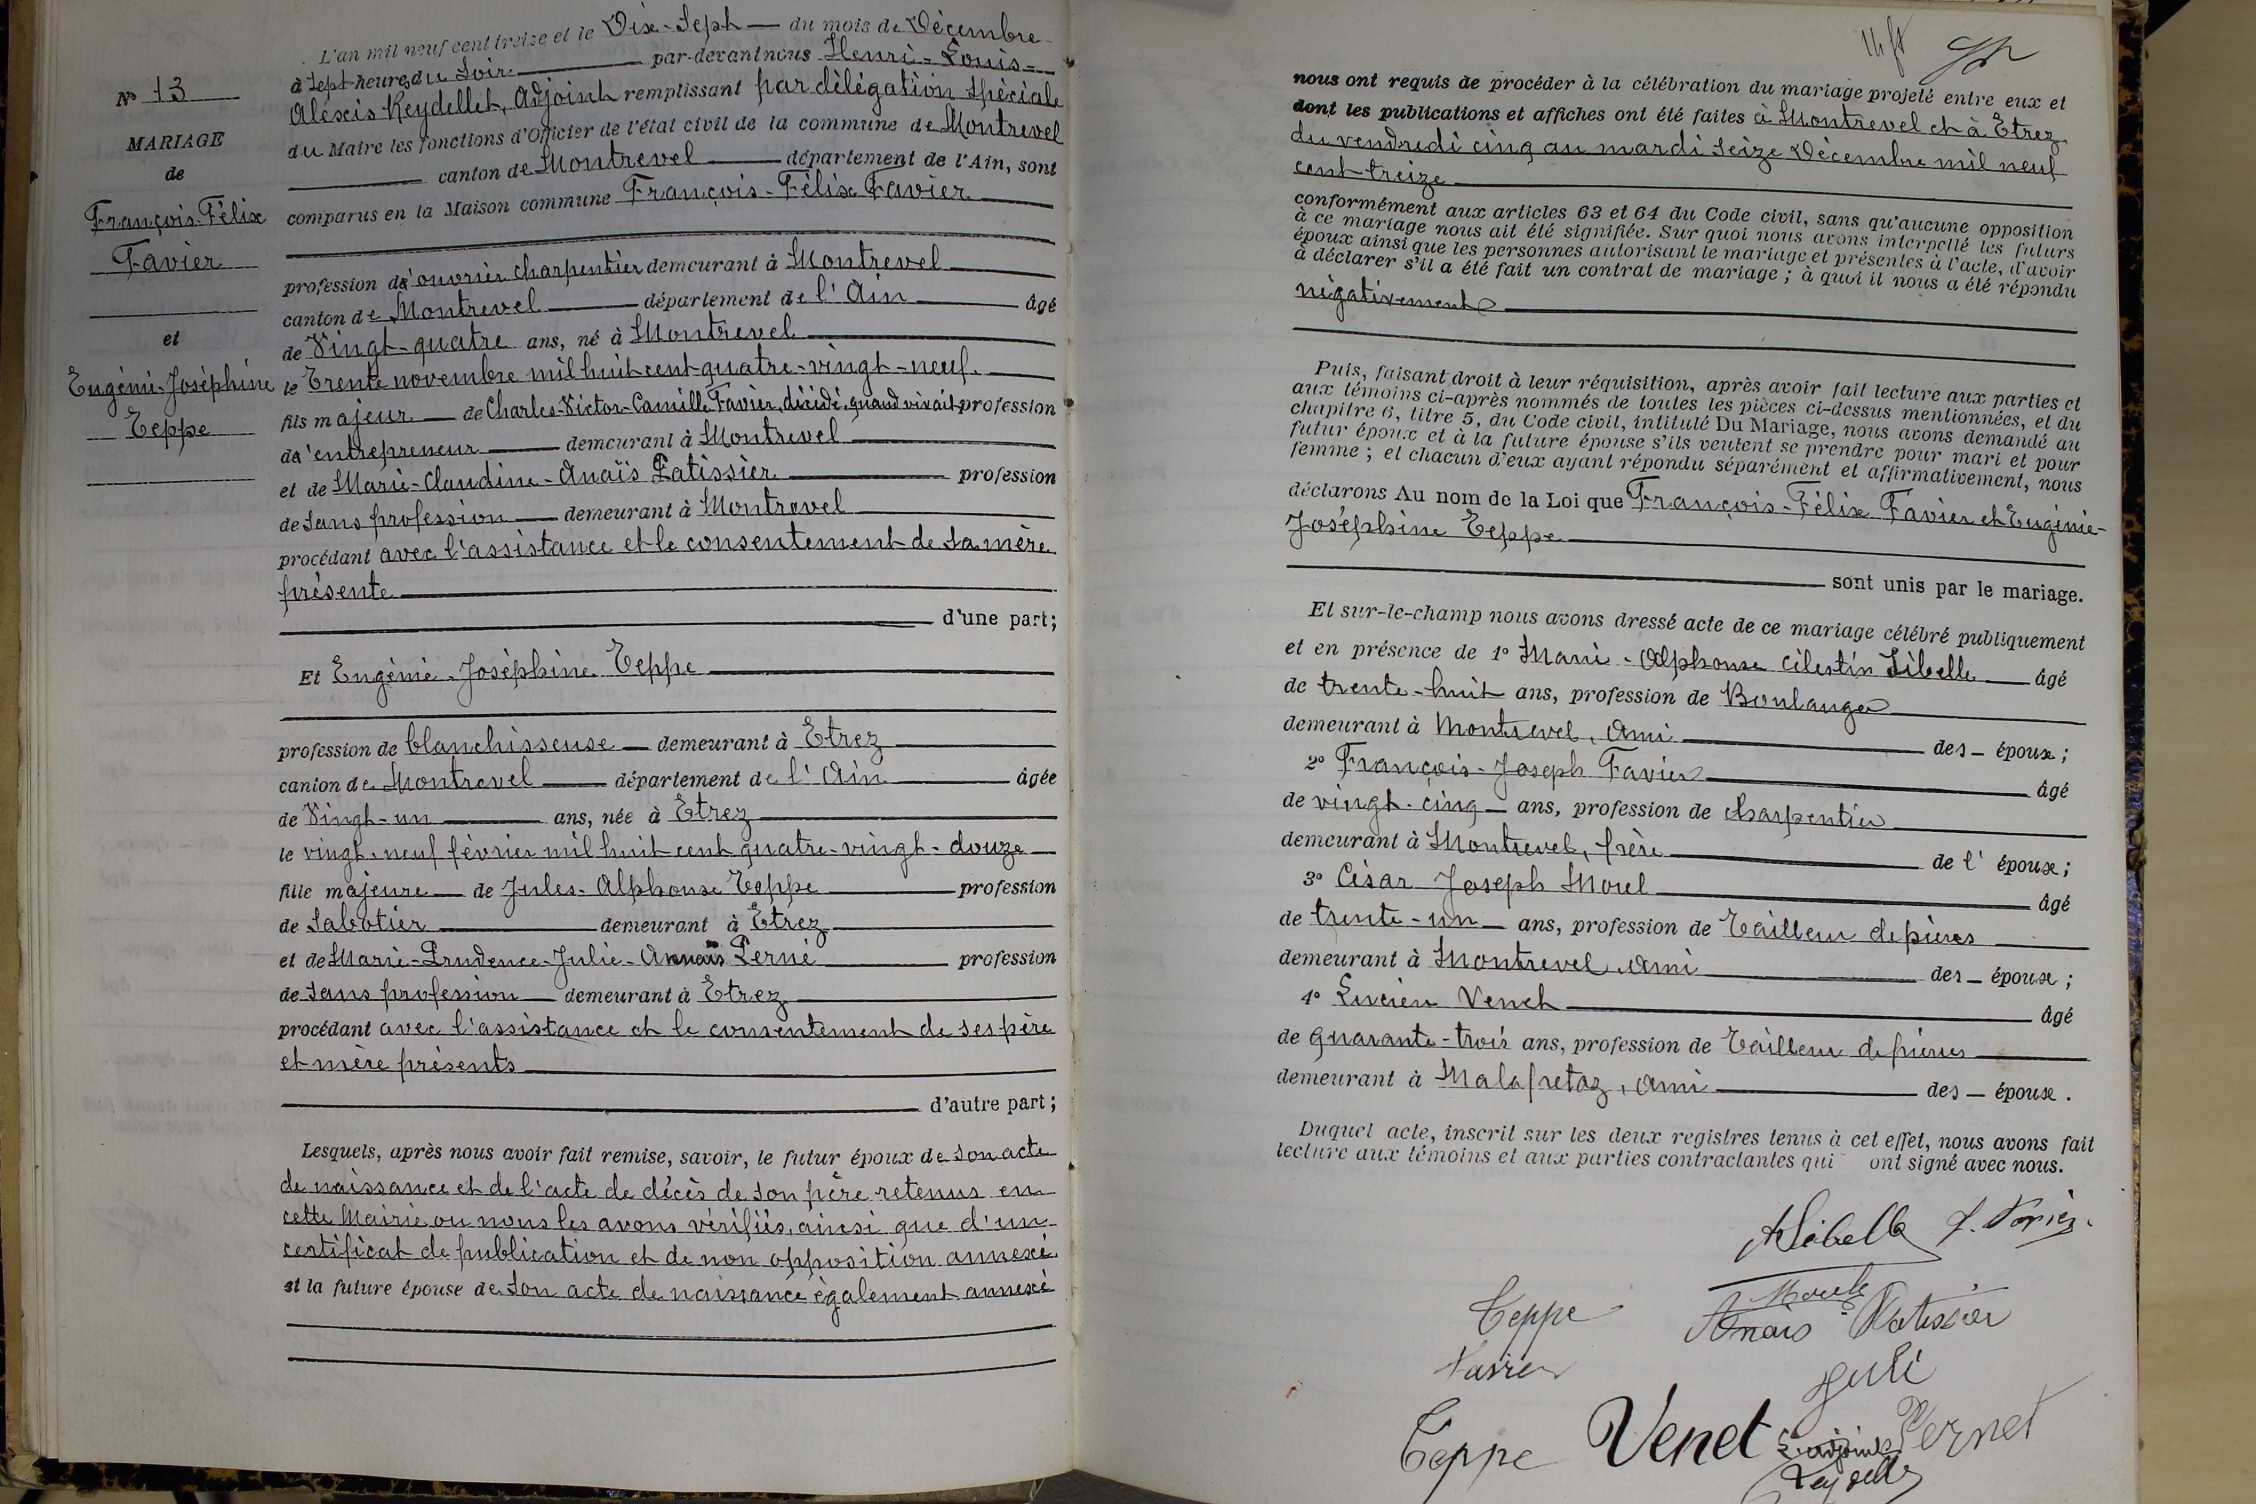 N° 13
MARIAGE
de
François-Félix
Favier
et
Eugénie-Joséphine
Teppe
L'an mil neuf cent treize et le Dix-Sept du mois de Décembre
à Sept heures du Soir par-devant nous Henri-Louis-
Alexis Reydellet, Adjoint remplissant par délégation spéciale
du Maire les fonctions d'Officier de l'état civil de la commune de Montrevel
canton de Montrevel département de l'Ain, sont
comparus en la Maison commune François-Félix Favier
profession d'ouvrier charpentier demeurant à Montrevel
canton de Montrevel département de l'Ain âgé
de Vingt-quatre ans, né à Montrevel
le Trente novembre mil huit cent quatre-vingt-neuf.
fils majeur de Charles-Victor-Camille Favier, décédé, quand vivait profession
d'entrepreneur demeurant à Montrevel
et de Marie-Claudine-Anaïs Patissier profession
de Sans profession demeurant à Montrevel
procédant avec l'assistance et le consentement de sa mère
présente
d'une part;
Et Eugénie-Joséphine Teppe
profession de blanchisseuse demeurant à Etrez
canton de Montrevel département de l'Ain âgée
de Vingt-un ans, née à Etrez
le vingt-neuf février mil huit cent quatre-vingt-douze
fille majeure de Jules-Alphonse Teppe profession
de Sabotier demeurant à Etrez
et de Marie-Prudence-Julie-Annaïs Perné profession
de Sans profession demeurant à Etrez
procédant avec l'assistance et le consentement de ses père
et mère présents
d'autre part;
Lesquels, après nous avoir fait remise, savoir, le futur époux de son acte
de naissance et de l'acte de décès de son père retenus en
cette Mairie ou nous les avons vérifiés, ainsi que d'un
certificat de publication et de non opposition annexé.
et la future épouse de son acte de naissance également annexé
nous ont requis de procéder à la célébration du mariage projeté entre eux et
dont les publications et affiches ont été faites à Montrevel et à Etrez
du vendredi cinq au mardi seize Décembre mil neuf
cent treize
conformément aux articles 63 et 64 du Code civil, sans qu'aucune opposition
à ce mariage nous ait été signifiée. Sur quoi nous avons interpellé les futurs
époux ainsi que les personnes autorisant le mariage et présentes à l'acte, d'avoir
à déclarer s'il a été fait un contrat de mariage ; à quoi il nous a été répondu
négativement
Puis, faisant droit à leur réquisition, après avoir fait lecture aux parties et
aux témoins ci-après nommés de toutes les pièces ci-dessus mentionnées, et du
chapitre 6, titre 5, du Code civil, intitulé Du Mariage, nous avons demandé au
futur époux et à la future épouse s'ils veulent se prendre pour mari et pour
femme ; et chacun d'eux ayant répondu séparément et affirmativement, nous
déclarons Au nom de la Loi que François-Félix Favier et Eugénie-
Joséphine Teppe
sont unis par le mariage.
Et sur-le-champ nous avons dressé acte de ce mariage célébré publiquement
et en présence de 1° Marie-Alphonse Célestin Sibelle âgé
de trente-huit ans, profession de Boulanger
demeurant à Montrevel, ami des époux ;
2° François-Joseph Favier âgé
de vingt-cinq ans, profession de charpentier
demeurant à Montrevel, frère de l'époux ;
3° César Joseph Morel âgé
de trente-un ans, profession de Tailleur de pierres
demeurant à Montrevel, ami des époux ;
4° Lucien Venet âgé
de quarante-trois ans, profession de Tailleur de pierres
demeurant à Malafretaz, ami des époux.
Duquel acte, inscrit sur les deux registres tenus à cet effet, nous avons fait
lecture aux témoins et aux parties contractantes qui ont signé avec nous.
ASibelle
Teppe
Anaïs Patissier
Favier
Teppe Venet L'adjoint Pernet
Reydellet